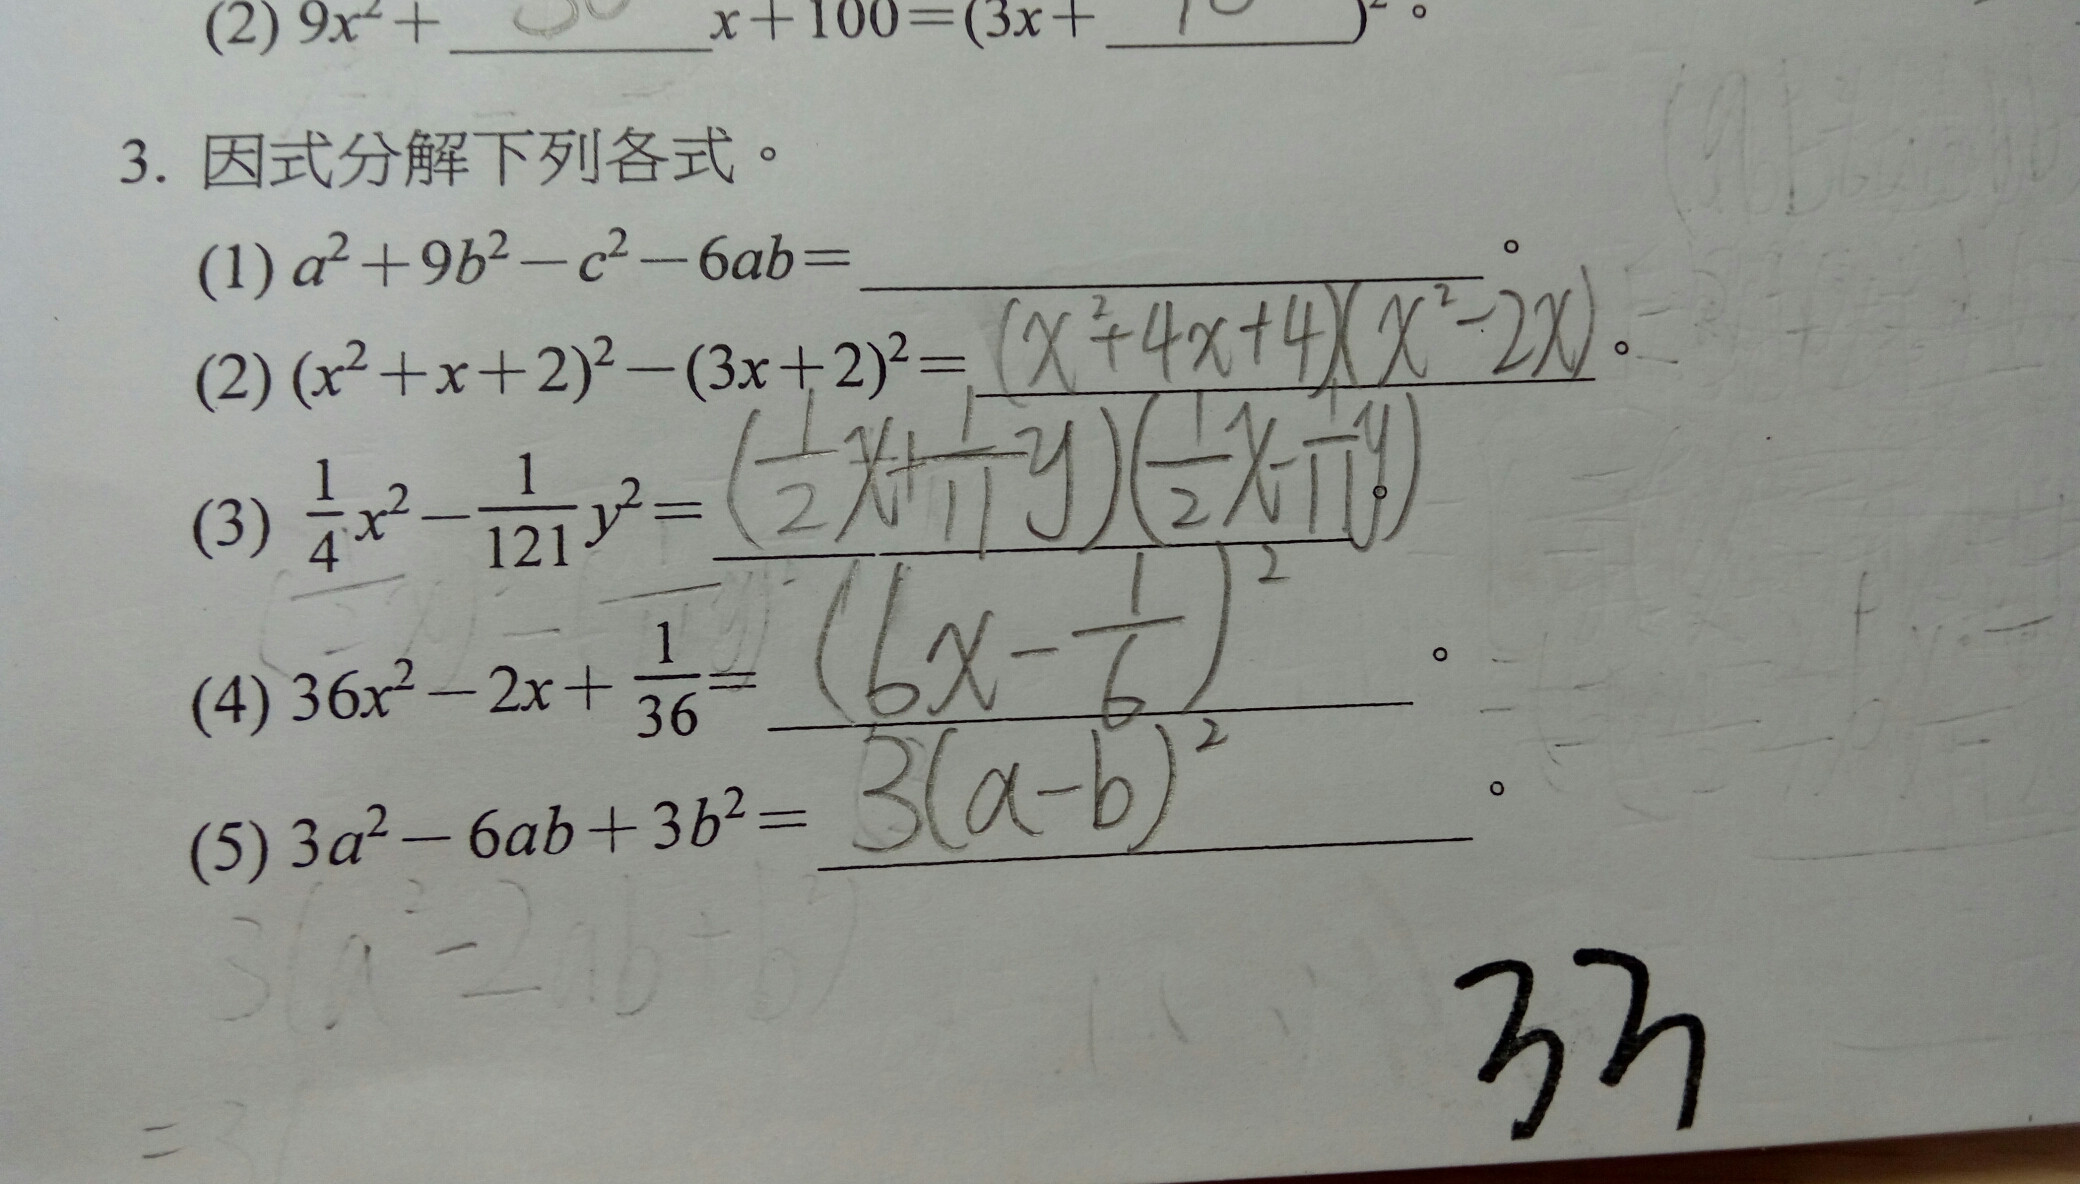 (2) 9x²+ x+100=(3x+ 10 )²。
3. 因式分解下列各式。
(1) a²+9b²-c²-6ab= 。
(2) (x²+x+2)²-(3x+2)²= (x²+4x+4)(x²-2x)。
(3) 1/4 x²-1/121 y²= (1/2 x+1/11 y)(1/2 x-1/11 y)。
(4) 36x²-2x+1/36= (6x-1/6)² 。
(5) 3a²-6ab+3b²= 3(a-b)² 。
3(a²-2ab+b²)
=3(